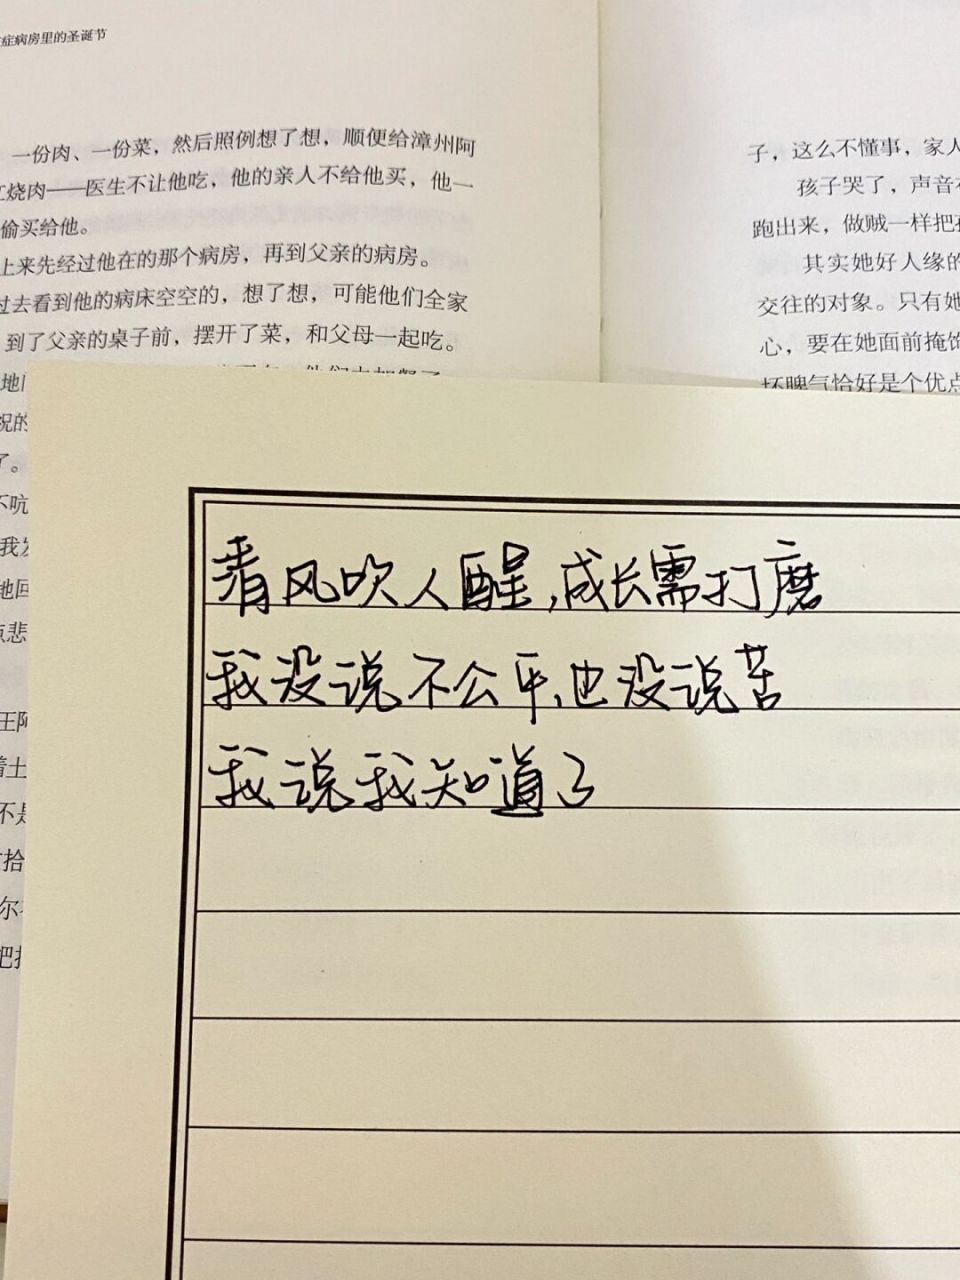 症病房里的圣诞节
一份肉、一份菜，然后照例想了想，顺便给漳州阿
烧肉——医生不让他吃，他的亲人不给他买，他一
偷买给他。
上来先经过他在的那个病房，再到父亲的病房。
过去看到他的病床空空的，想了想，可能他们全家
到了父亲的桌子前，摆开了菜，和父母一起吃。
地
祝的
了。
不吭
我发
地回
点悲
王阿
着土
不是
拾
尔
把
子，这么不懂事，家人
孩子哭了，声音
跑出来，做贼一样把
其实她好人缘的
交往的对象。只有她
心，要在她面前掩饰
坏脾气恰好是个优点
看风吹人醒,成长需打磨
我没说不公平,也没说苦
我说我知道了